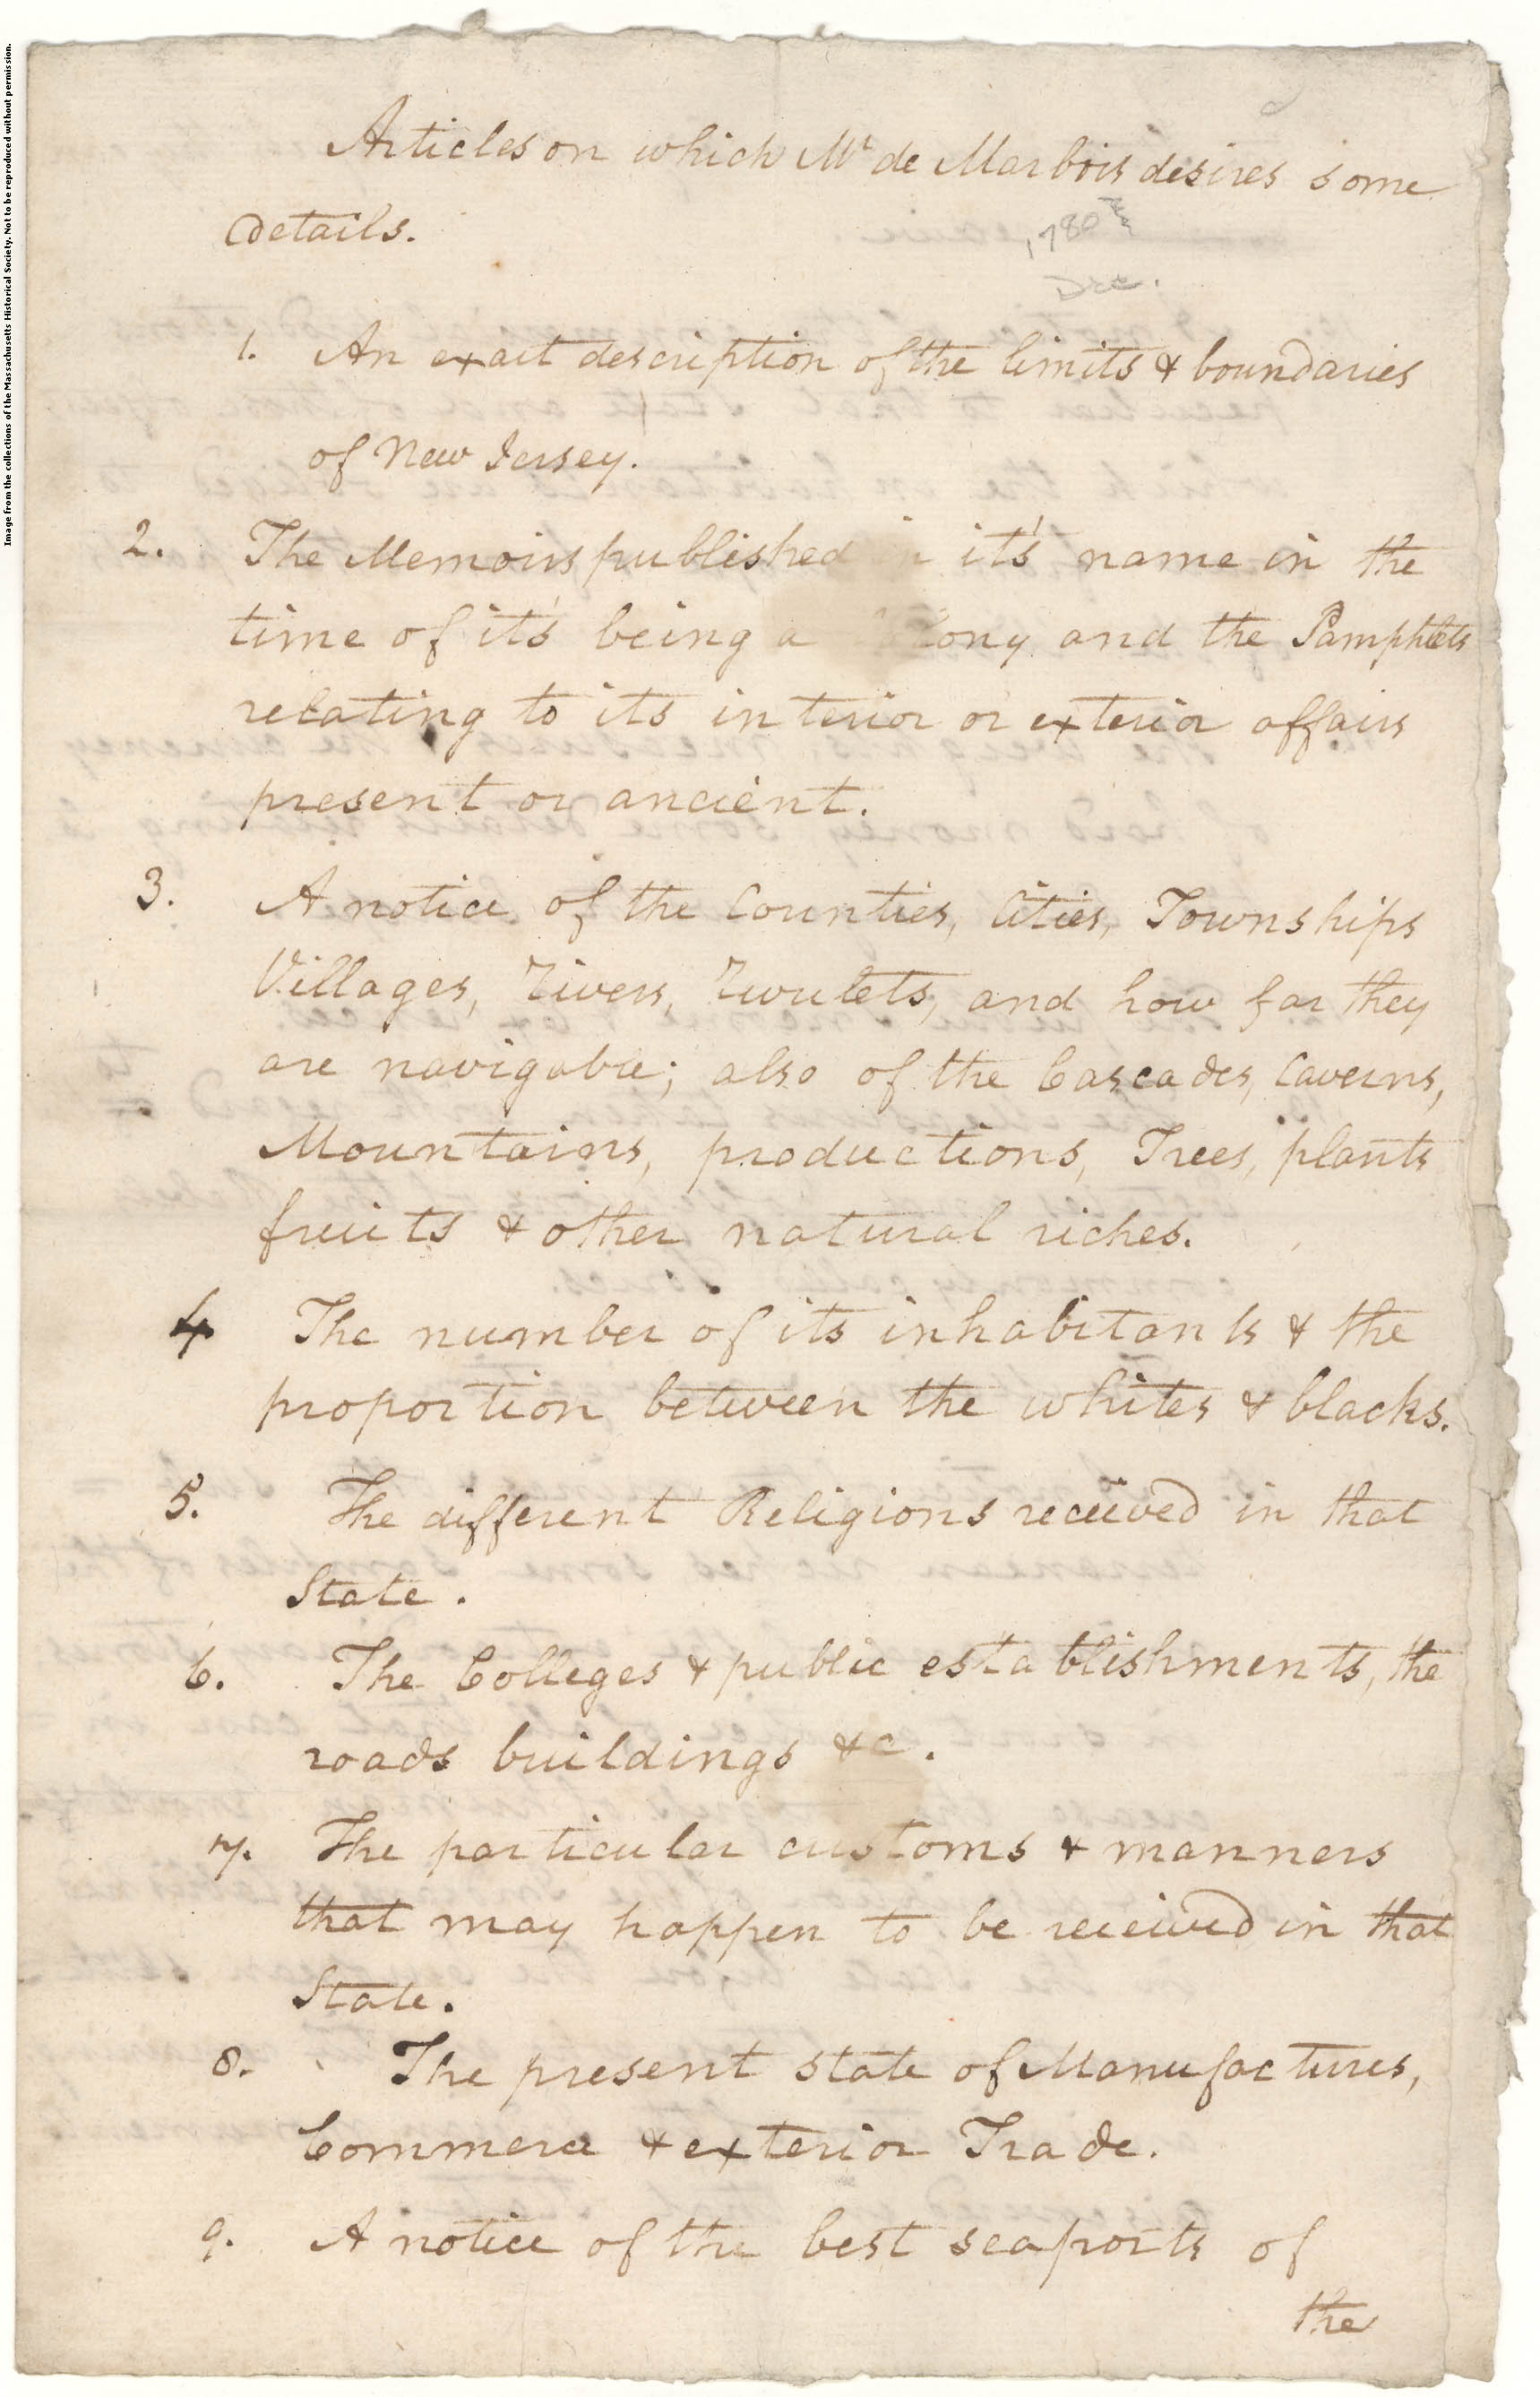 Image from the collections of the Massachusetts Historical Society. Not to be reproduced without permission.
Articles on which Mr de Marbois desires some
details.
1780
Dec.
1. An exact description of the limits & boundaries
of New Jersey.
2. The Memoirs published in it's name in the
time of it's being a Colony and the Pamphlets
relating to its interior or exterior affairs
present or ancient.
3. A notice of the Counties, Cities, Townships
Villages, Rivers, Rivulets, and how far they
are navigable; also of the Cascades, Caverns,
Mountains, productions, Trees, plants
fruits & other natural riches.
4 The number of its inhabitants & the
proportion between the whites & blacks.
5. The different Religions received in that
State.
6. The Colleges & public establishments, the
roads buildings &c.
7. The particular customs & manners
that may happen to be received in that
State.
8. The present state of Manufactures,
Commerce & exterior Trade.
9. A notice of the best seaports of
the